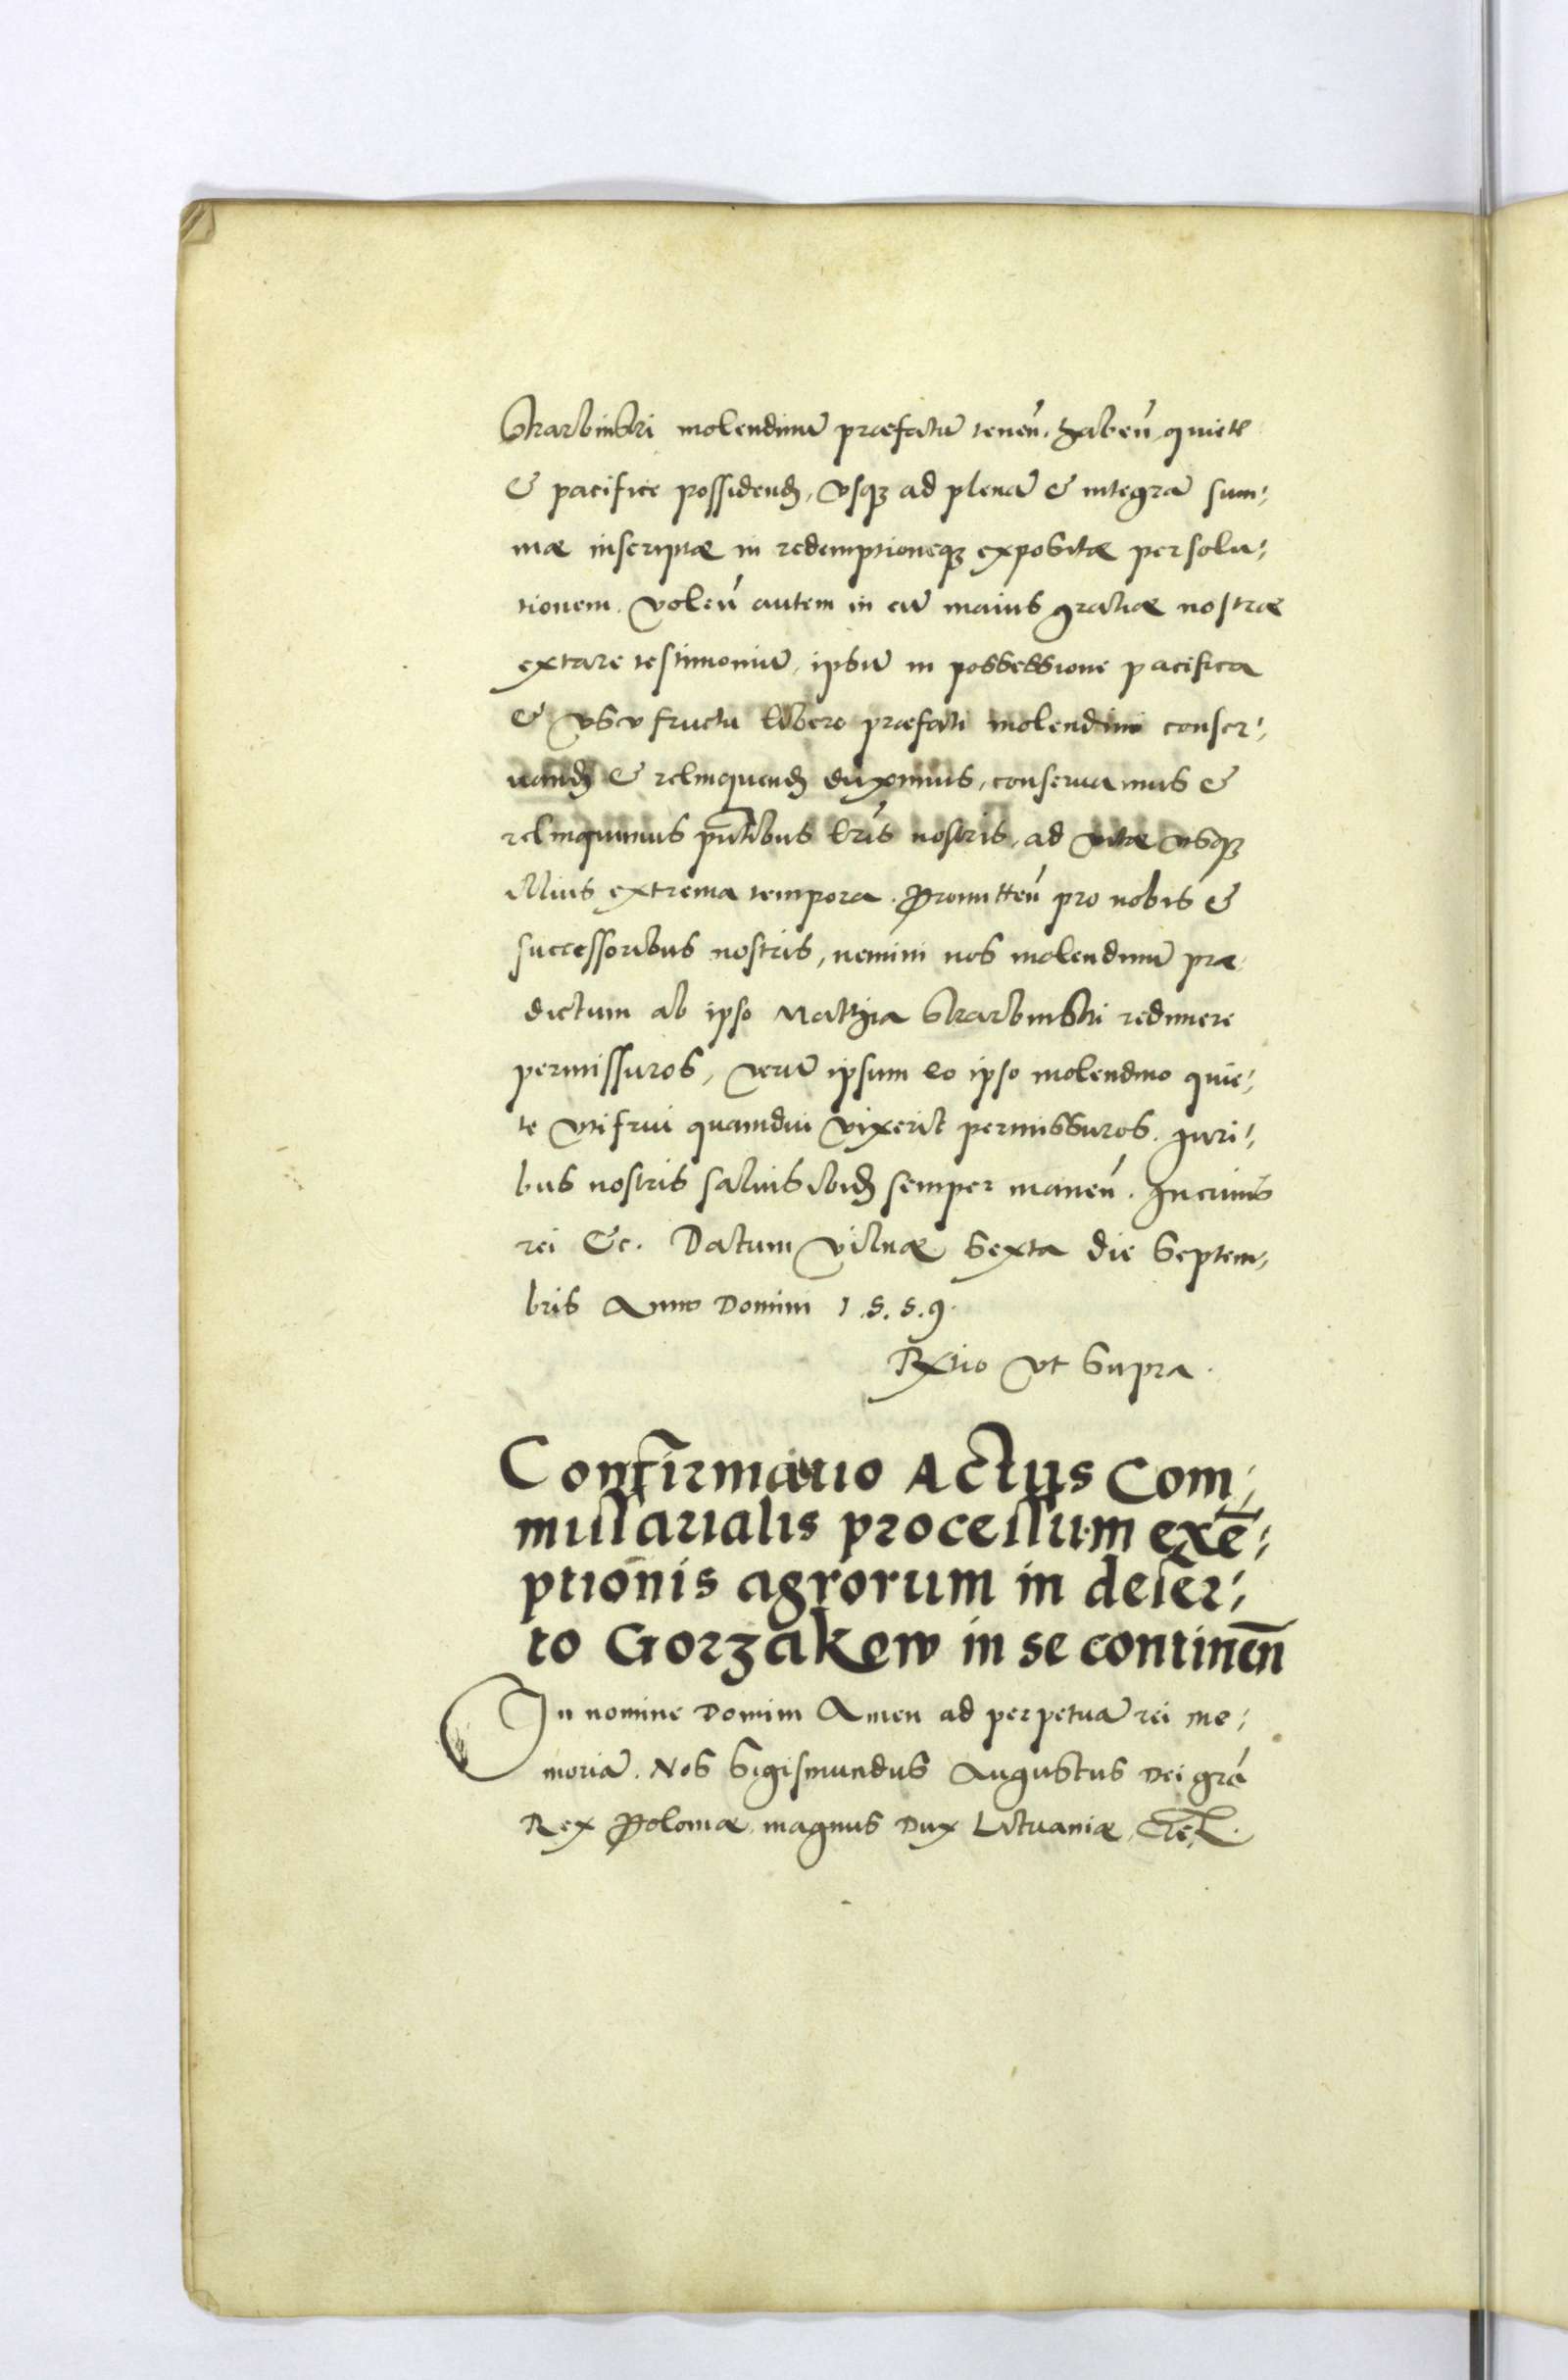 Skarbinski molendinū præfatū tenen̄. haben̄ quiete
& pacifice possidend, vsq3 ad plenā & integrā sum⸗
mæ inscriptæ in redemptioneq3 expositæ persolu⸗
tionem. Volen̄ autem in eū maius gratiæ nostræ
extare testimoniū, ipsū in possessione pacifica
& vsufructu libero præfati molendini conser⸗
uand & relinquend duximus, conseruamus &
relinquimus pn̄tibus lr̄is nostris, ad vitæ vsq3
illius extrema tempora. Promitten̄ pro nobis &
successoribus nostris, nemini nos molendinū præ
dictum ab ipso Mathia Skarbinski redimere
permissuros, verū ipsum eo ipso molendino quie⸗
te vti frui quamdiu vixerit permissuros. Juri⸗
bus nostris saluis ibid semper manen̄. In cuius
rei &c. Datum Vilnæ sexta die Septem⸗
bris Anno Domini 1.5.5.9.
Rxtio vt supra.
Confirmatio Actus Com⸗
missarialis processum exē⸗
ptionis agrorum in deser⸗
to Gorzakow in se continēn
In nomine Domini Amen ad perpetuā rei me⸗
moriā. Nos Sigismundus Augustus Dei grā
Rex Poloniæ magnus Dux Lituaniæ,